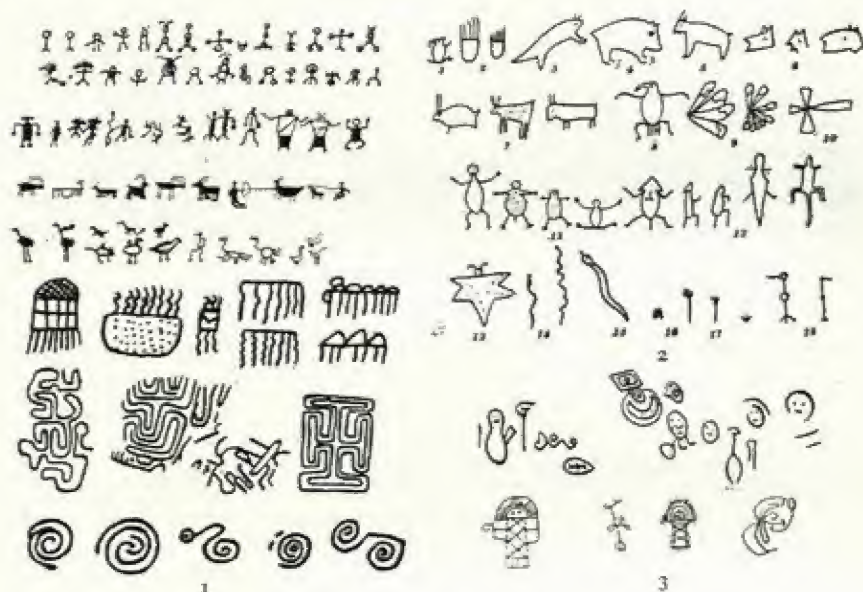 1 2 3 4 5 6
7 8 9 10
11 12
13 14 15 16 17 18
2
1
3